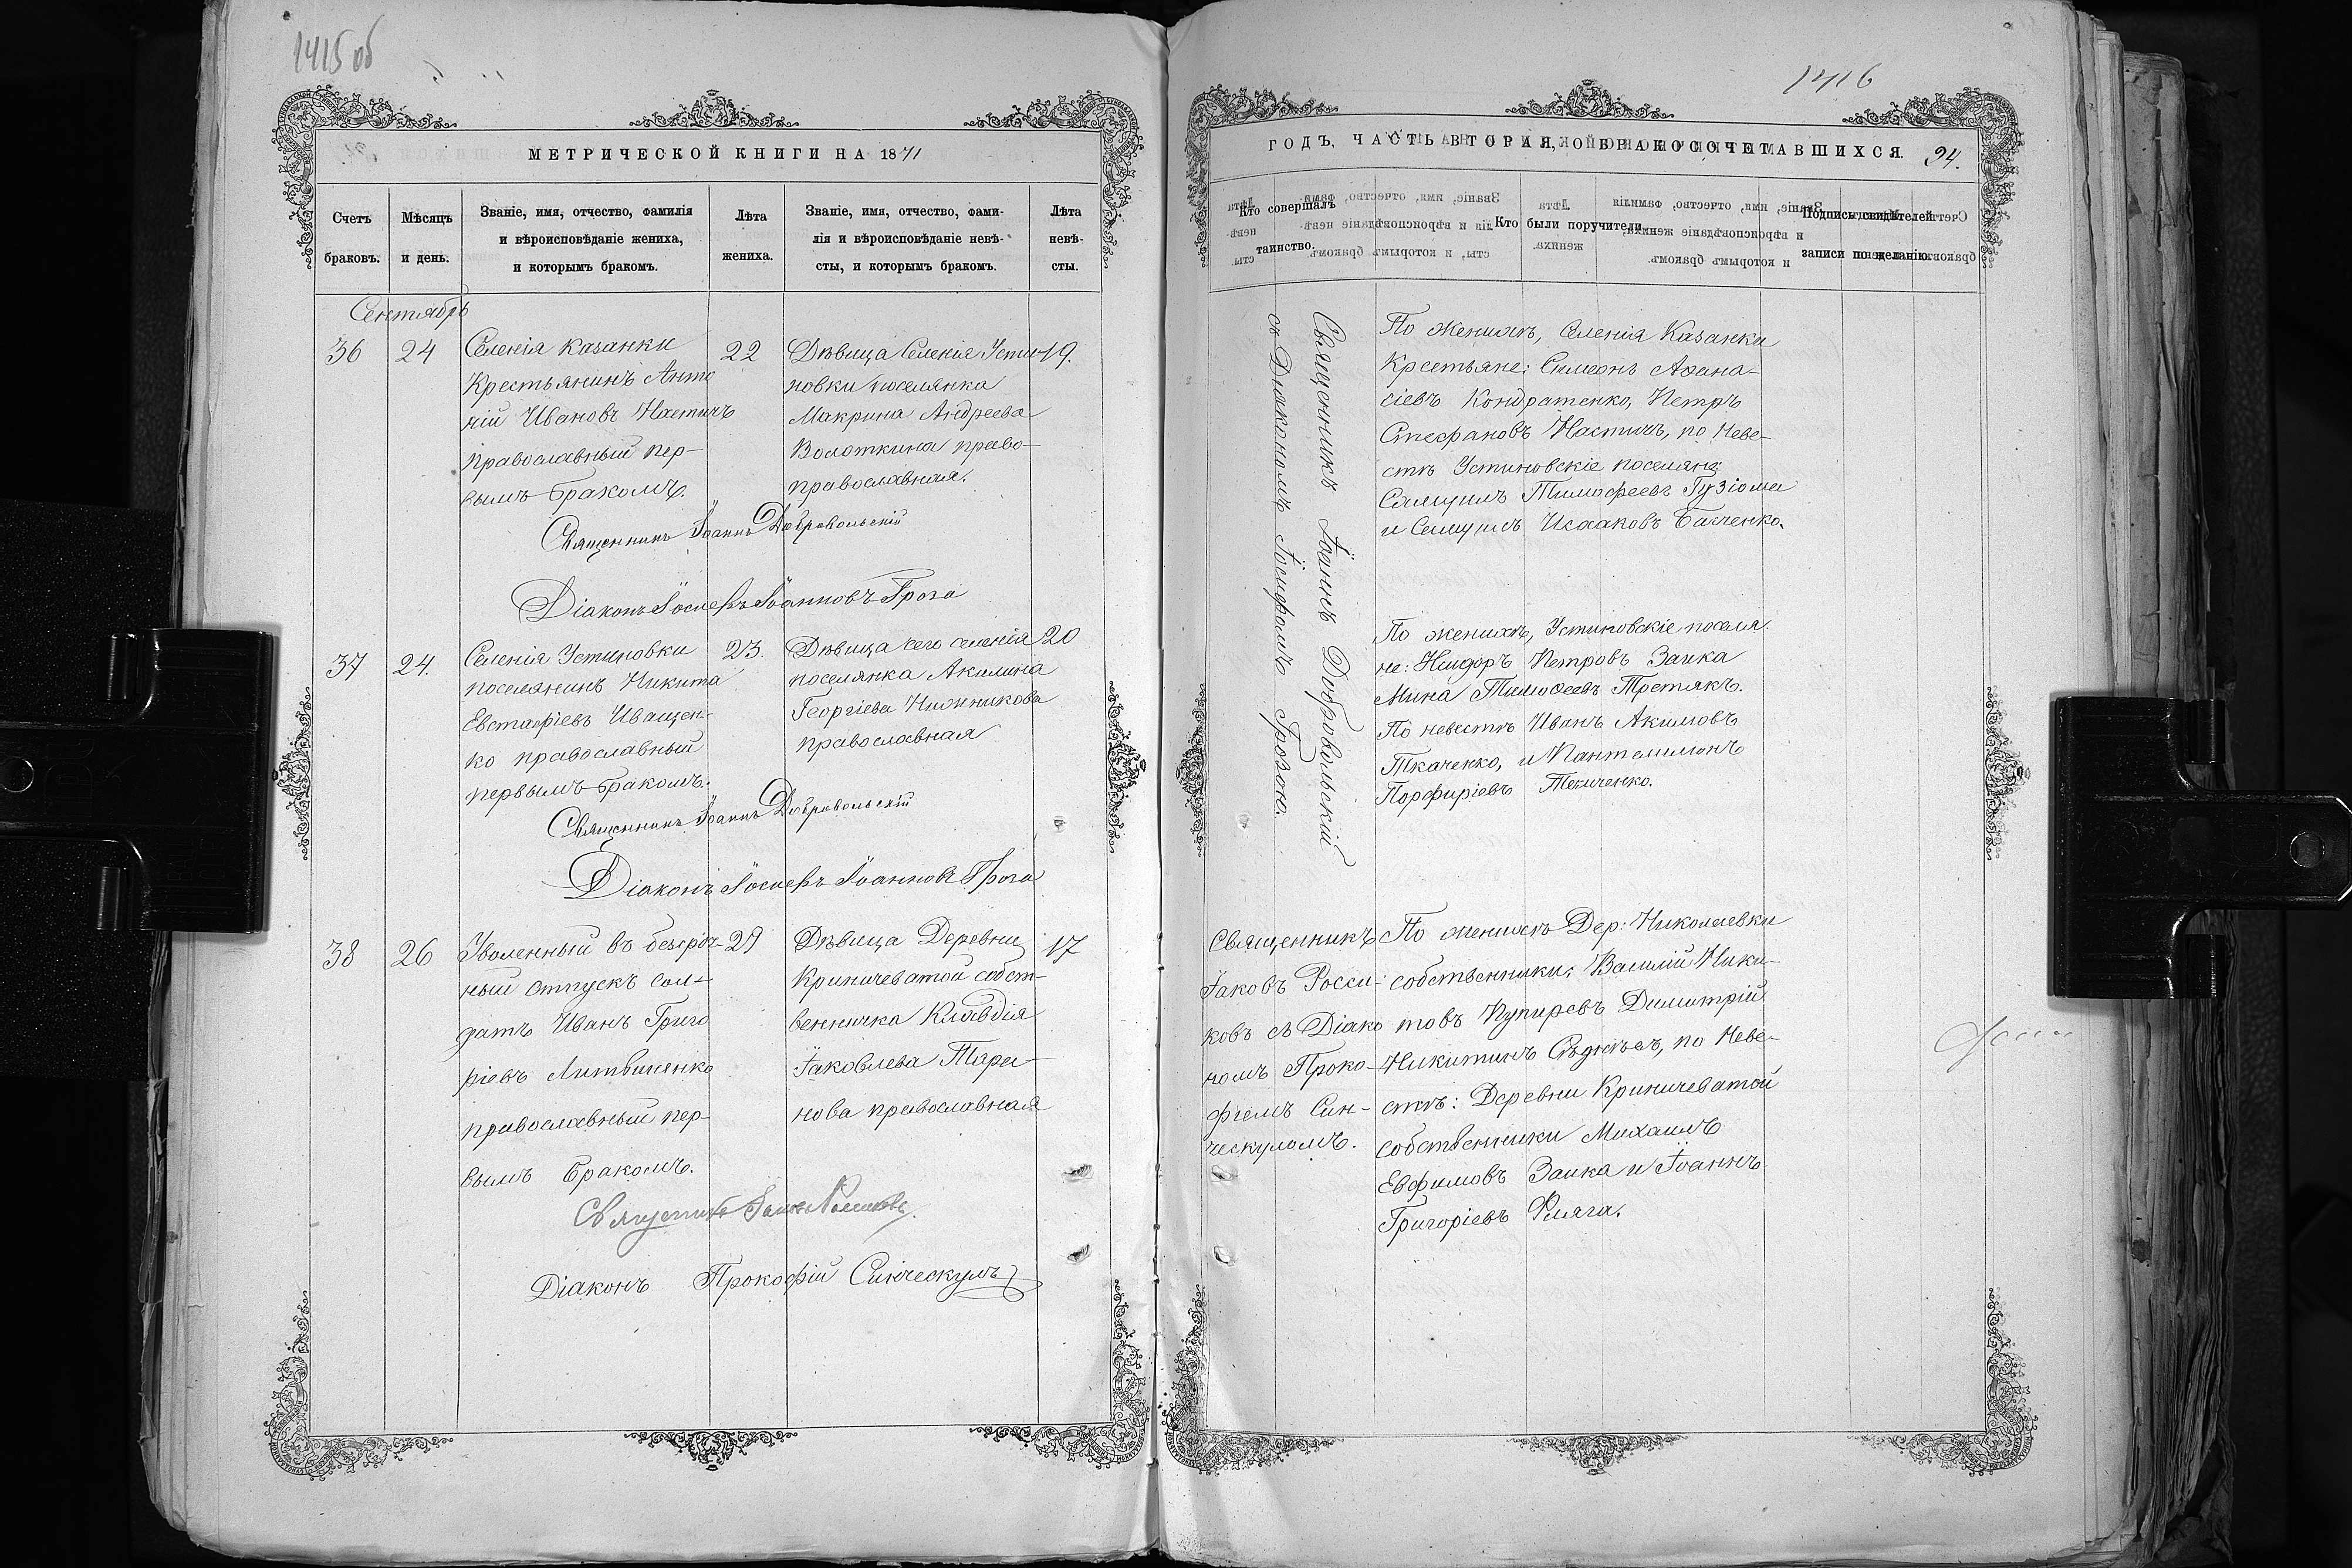 1415 об
МЕТРИЧЕСКОЙ КНИГИ НА 1871
Счетъ браковъ.
Мѣсяцъ и день.
Званіе, имя, отчество, фамилія
и вѣроисповѣданіе жениха,
и которымъ бракомъ.
Лѣта
жениха.
Званіе, имя, отчество, фами-
лія и вѣроисповѣданіе невѣ-
сты, и которымъ бракомъ.
Лѣта
невѣ-
сты.
Сентябрь
36
24
Селенія Казанки
Крестьянинъ Анто
ній Ивановъ Настичъ
православный пер-
вымъ бракомъ.
22
Дѣвица Селенія Усти-
новки поселянка
Макрина Андреева
Волоткина право-
православная.
19.
Священникъ Іоаннъ Добровольскій
Діаконъ Іосифъ Іоанновъ Гроза
37
24.
Селенія Устиновки
поселянинъ Никита
Евстафіевъ Иващен-
ко православный
первымъ бракомъ.
23.
Дѣвица сего селенія
поселянка Акилина
Георгіева Нижникова
православная
20
Священникъ Іоаннъ Добровольскій
Діаконъ Іосифъ Іоанновъ Гроза
38
26
Уволенный въ безсроч-
ный отпускъ сол-
датъ Иванъ Григо
ріевъ Литвиненко
православный пер-
вымъ бракомъ.
29
Дѣвица Деревни
Криничеватой собст-
венничка Клавдія
Іаковлева Тара-
нова православная
17
Священникъ Іаковъ Россиковъ
Діаконъ Прокофій Синческулъ
1416
ГОДЪ, ЧАСТЬ ВТОРАЯ, О БРАКОСОЧЕТАВШИХСЯ.
94.
Кто совершалъ
таинство.
Кто были поручители.
Подпись свидѣтелей
записи по желанію.
Священникъ Іоаннъ Добровольскій
съ Діакономъ Іосифомъ Грозою.
По женихѣ, Селенія Казанки
Крестьяне: Симеонъ Афана-
сіевъ Кондратенко, Петръ
Стефановъ Настичъ, по Неве-
стѣ Устиновскіе поселяне
Самуилъ Тимофеевъ
и Самуилъ Исааковъ
По женихѣ, Устиновскіе поселя
не: Петровъ Заика
Мина Тимофеевъ Третякъ.
По невестѣ Иванъ Акимовъ
Ткаченко, и Пантелимонъ
Порфиріевъ
Священникъ
Іаковъ Росси-
ковъ съ Діако
номъ Проко-
фіемъ Син-
ческуломъ.
По женихѣ Дер: Николаевки
собственники: Василій Ники-
товъ Димитрій
Никитинъ по Неве-
стѣ: Деревни Криничеватой
собственники Михаилъ
Евфимовъ Заика и Іоаннъ
Григоріевъ Фляга.